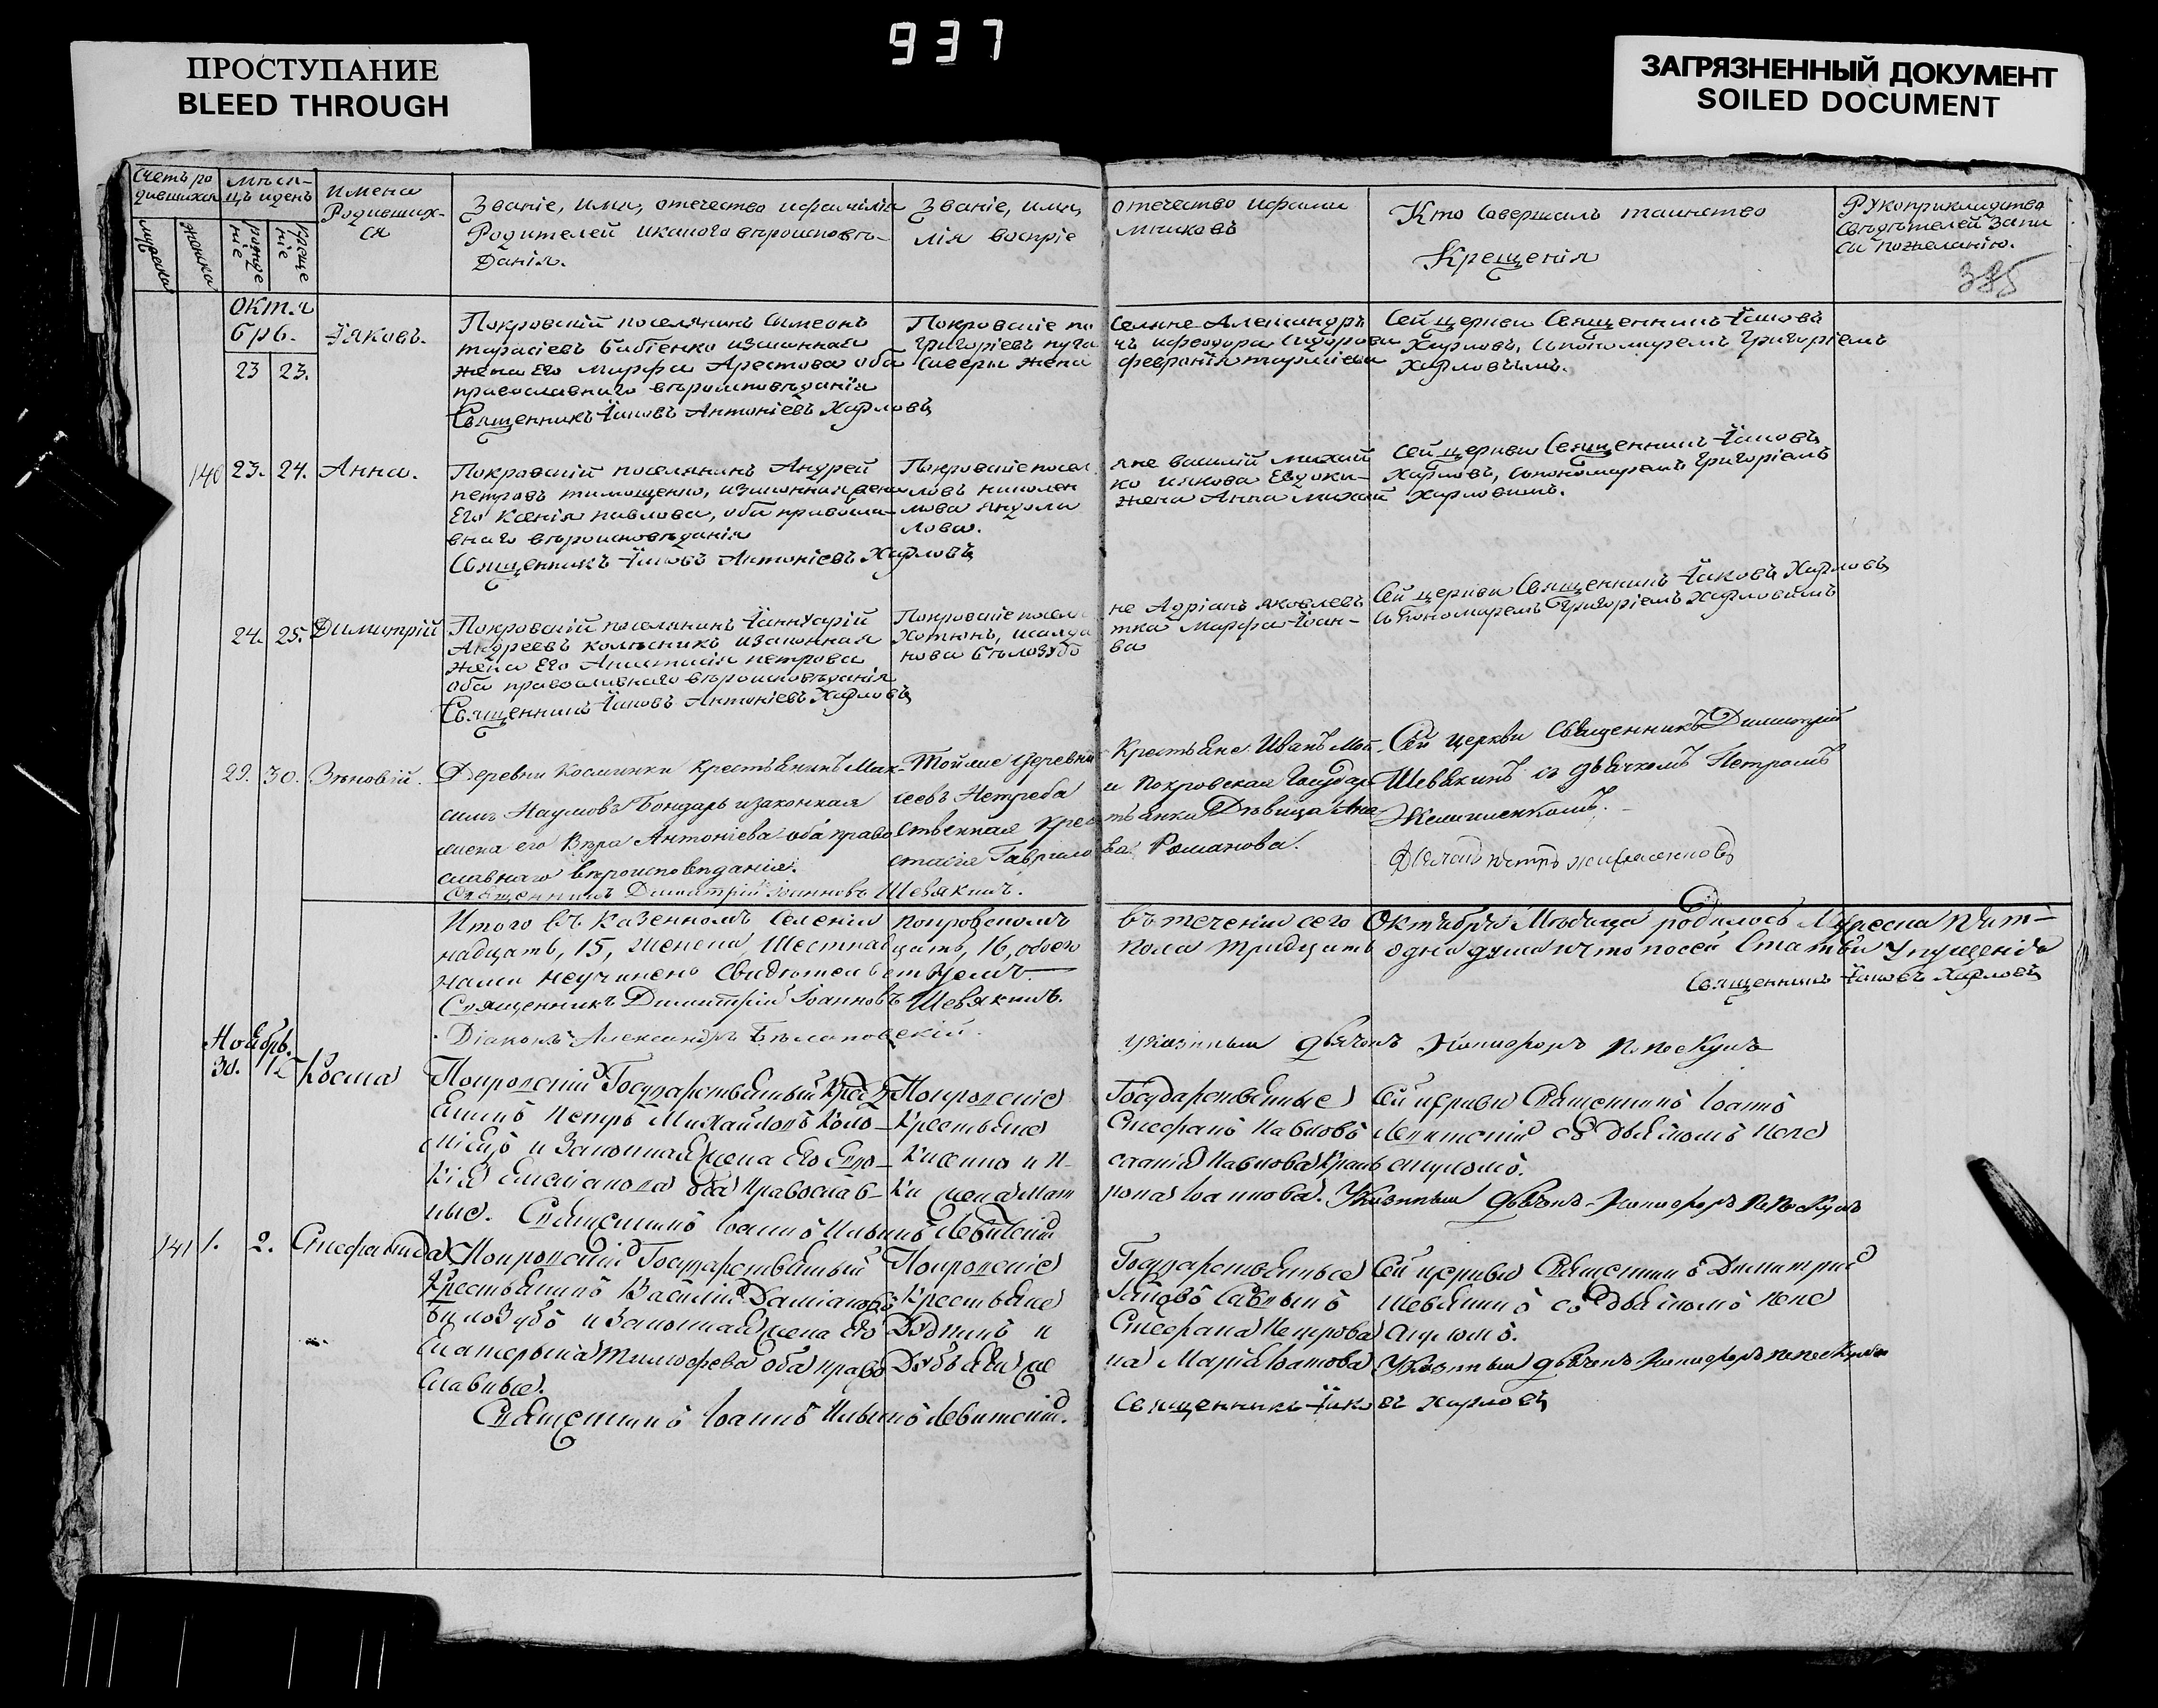 937
ПРОСТУПАНИЕ
BLEED THROUGH
ЗАГРЯЗНЕННЫЙ ДОКУМЕНТ
SOILED DOCUMENT
Счетъ ро
дившихся
мужеска
женска
Мѣся-
цъ и день
рожде
ніе
креще
ніе
Имена
Родивших-
ся
Званіе, имя, отечество и фамилія
Родителей и какого вѣроисповѣ-
данія.
Званіе, имя,
лія воспріе
отечество и фами
мниковъ
Кто совершалъ таинство
Крещенія
Рукоприкладство
свѣдѣтелей записи
по желанію.
385
Октя
брь.
23 23.
Іяковъ.
Покровскій поселянинъ Симеонъ
тарасіевъ Бабтенко и законная
жена Его Марфа Арестова оба
православнаго вѣроисповѣданія
Священникъ Іаковъ Антоніевъ Харловъ
Покровскіе по
Григоріевъ
Сиверы жена
селяне Александръ
и феодора Сидорова
феврОнія тарасіева
Сей церкви Священникъ Іаковъ
Харловъ, съ пономаремъ Григоріемъ
Харловымъ.
140 23. 24. Анна.
Покровскій поселянинъ Андрей
петровъ тимощенко, и законная жена
Его Ксенія павлова, оба правосла-
внаго вѣроисповѣданія
Священникъ Іаковъ Антоніевъ Харловъ
Покровскіе посел
ловъ
мова
лова.
яне василій михай
ко иякова Евдоки-
жена Анна михай
Сей церкви Священникъ Іаковъ
Харловъ, съ пономаремъ Григоріемъ
Харловымъ.
24. 25. Димитрій
Покровскій поселянинъ Іаннуарій
Андреевъ колѣсникъ и законная
жена Его Анастасія петрова
оба православнаго вѣроисповѣданія
Священникъ Іаковъ Антоніевъ Харловъ
Покровскіе посел
Хотюнъ, и салда
нова бѣлозубо
не Адріанъ яковлевъ
тка Марфа Іоан-
ва
Сей церкви Священникъ Іаковъ Харловъ
съ пономаремъ Григоріемъ Харловымъ
29. 30. Зѣновій.
Деревни Косминки крестьянинъ Мак-
симъ Наумовъ Бондарь и законная
жена его Вѣра Антоніева оба право
славнаго вѣроисповѣданія.
Священникъ Димитрій Іоанновъ Шевякинъ.
Той же деревни
сеевъ Нетреба
ственная крес
стасія Гаврило
Крестьяне Иванъ Мой-
и Покровская Государ
тьянка Дѣвица Ана-
ва Романова.
Сей церкви Священникъ Димитрій
Шевякинъ съ дьячкомъ Петромъ
Жемчиленкомъ.
Итого въ Казенномъ селеніи покровскомъ
надцать, 15, женска шестнадцать, 16, обоего
нами неучинено свидѣтельствуемъ
Священникъ Димитрій Іоанновъ Шевякинъ.
Діаконъ Александръ Бѣлановскій.
въ теченіи сего Октября Мѣсяца родилось Мужеска пят-
пола тридцать одна душа и что посей статьи упущенія
Священникъ Іаковъ Харловъ
указный дьячокъ Никифоръ
Ноябрь.
30. 1. Косма
Покровскій Государственный крестья
янинъ Петръ Михайловъ Коло-
мѣецъ и законная жена Его Евдо-
кія Емеліанова оба Православ-
ные. Священникъ Іоаннъ Ильинъ Левитскій
Покровскіе
Крестьяне
Государственные
Стефанъ Павловъ
Сей церкви Священникъ Іоаннъ
Левитскій съ дьячкомъ
Указный дьячокъ Никифоръ
141 1. 2. Стефанида
Покровскій Государственный
Крестьянинъ Василій Даміановъ
Бѣлозубъ и законная жена Его
Екатерина Тимофеева оба право
славные.
Священникъ Іоаннъ Ильинъ Левитскій.
Покровскіе
Крестьяне
Государственные
Стефана Петрова
на Марія Іоанова
Сей церкви Священникъ Димитрій
Шевякинъ съ дьячкомъ
Указный дьячокъ Никифоръ
Священникъ Іаковъ Харловъ